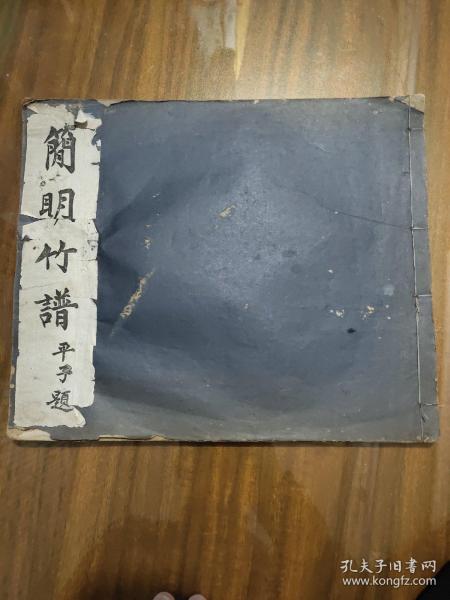 簡明竹譜
平子題
孔夫子旧书网
www.kongfz.com